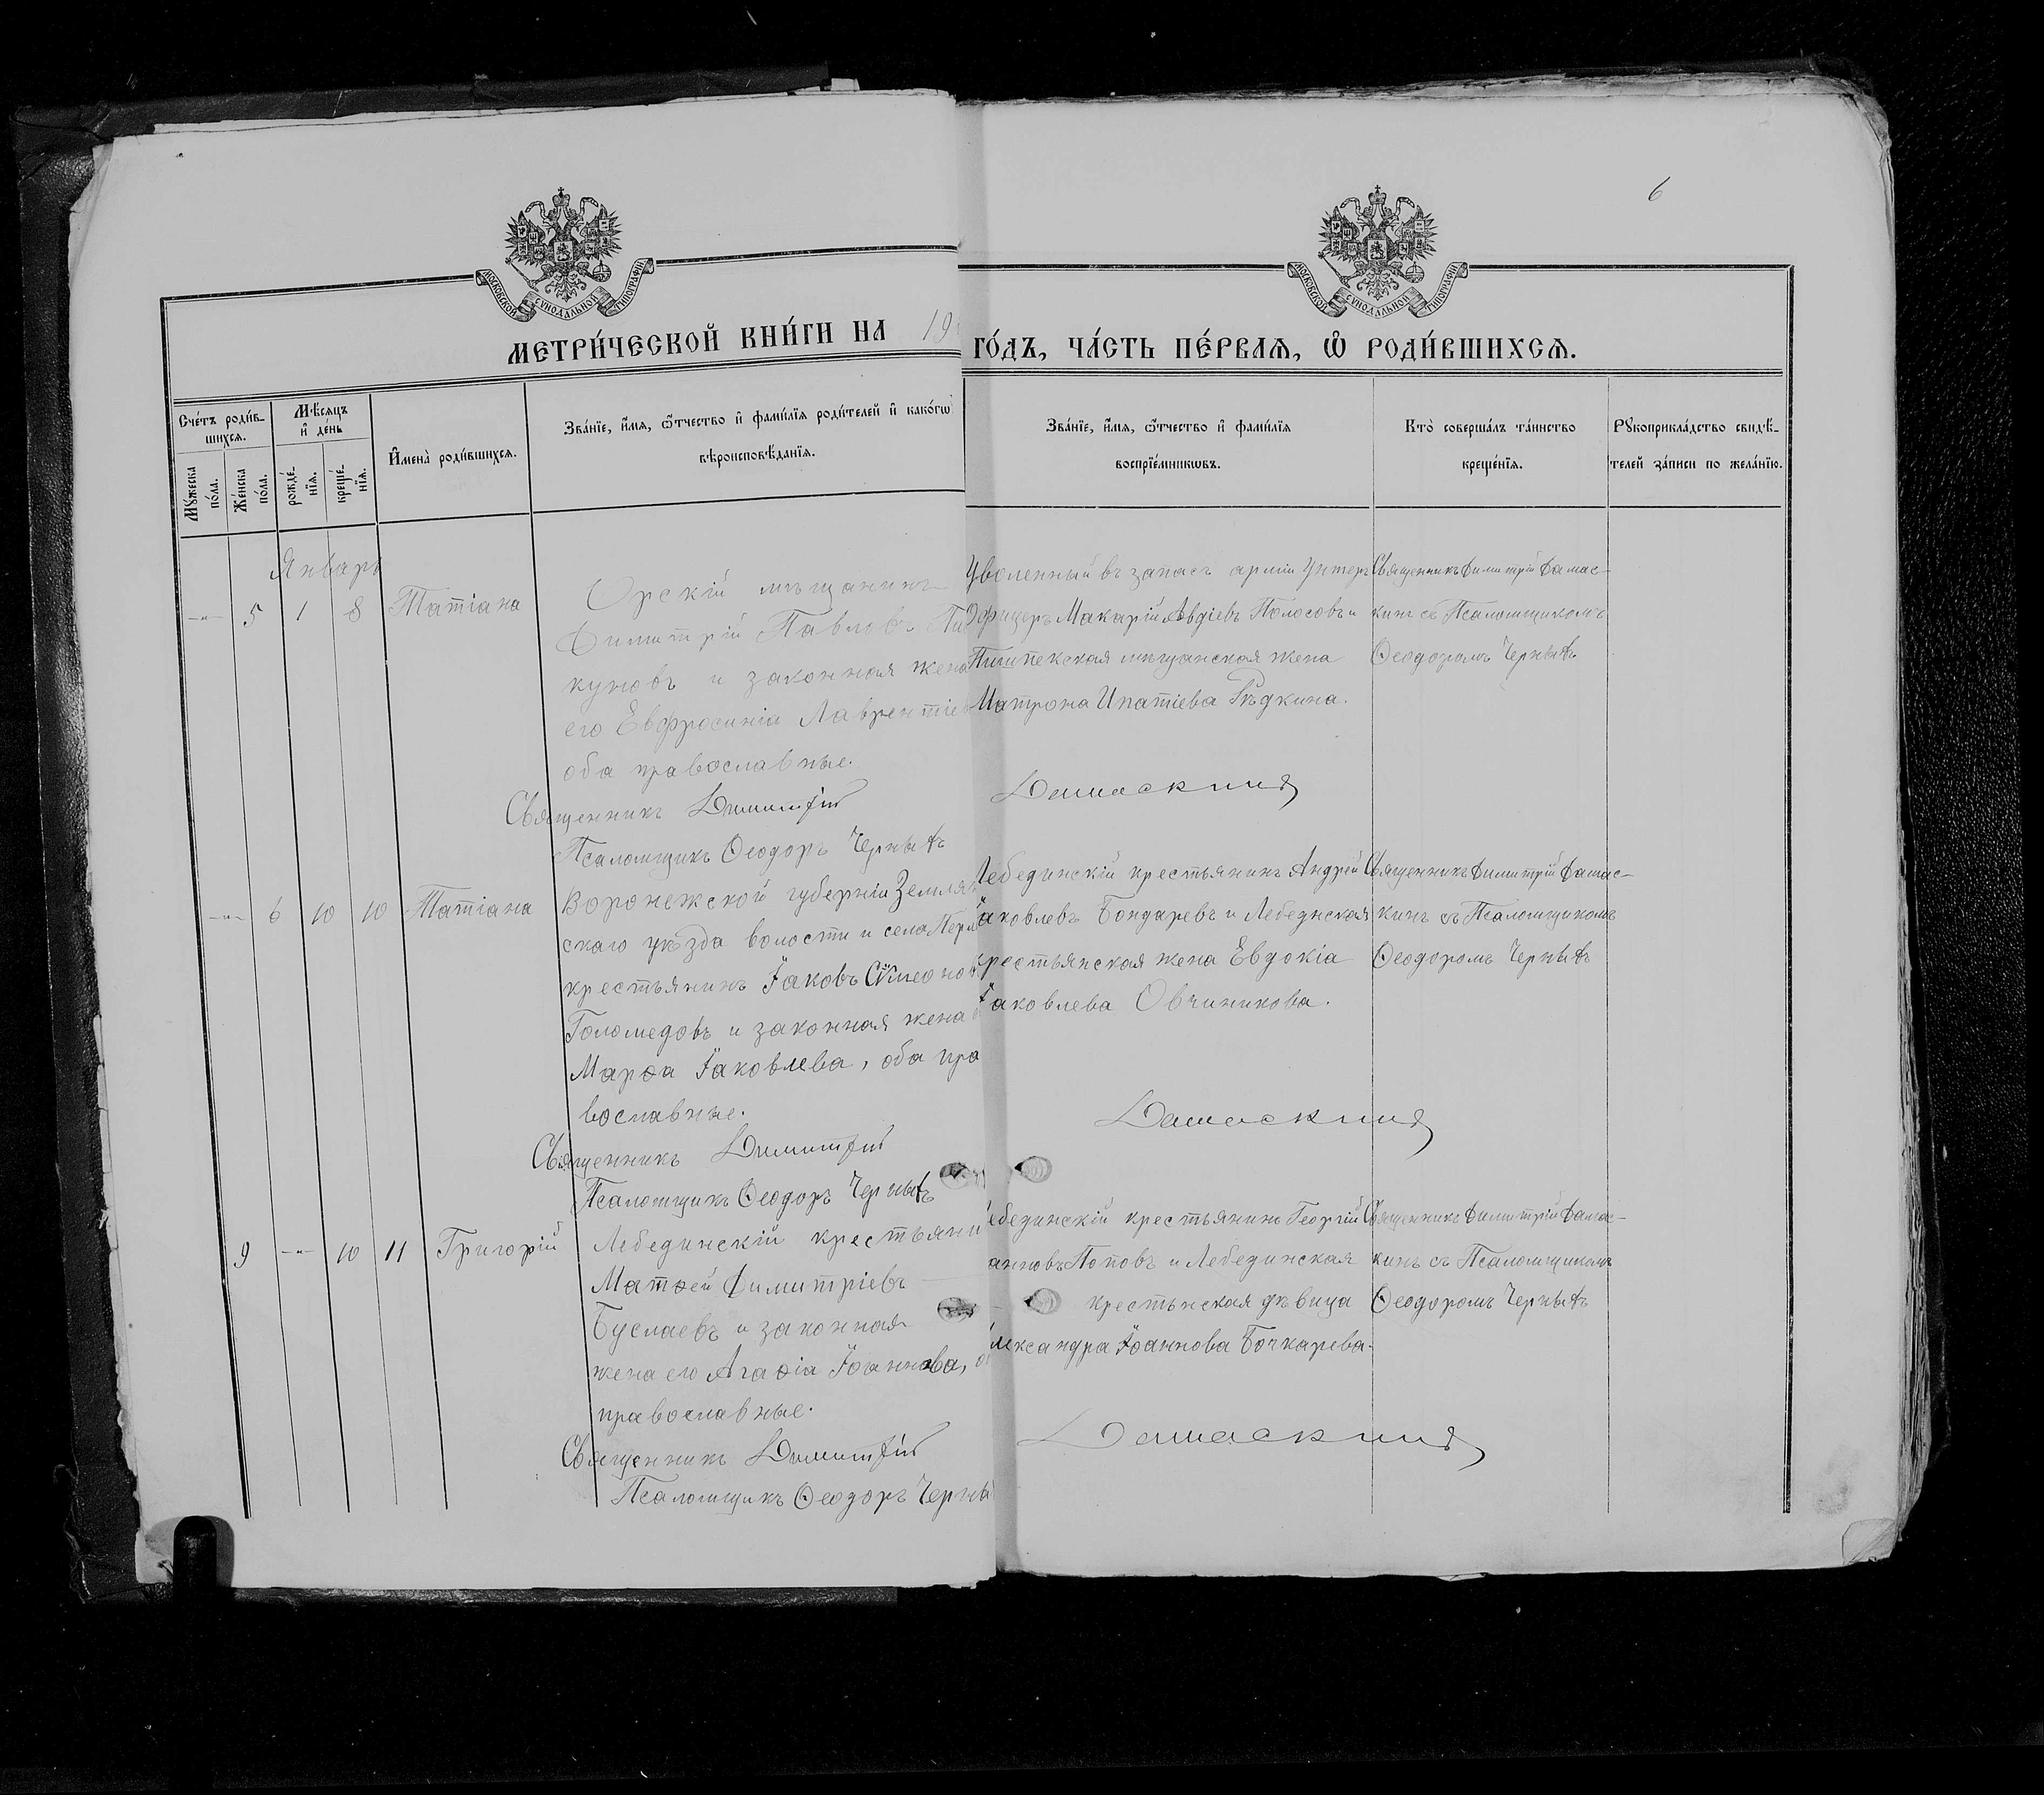 6
МОСКОВСКОЙ СѴНОДАЛЬНОЙ ТИПОГРАФІИ
МОСКОВСКОЙ СѴНОДАЛЬНОЙ ТИПОГРАФІИ
МЕТРИ́ЧЕСКОЙ КНИ́ГИ НА 19
ГО́ДЪ, ЧА́СТЬ ПЕ́РВАѦ, Ѡ҆ РОДИ́ВШИХСѦ.
Сче́тъ роди́в-
шихсѧ.
Мꙋ́жеска
по́ла.
Же́нска
по́ла.
Мѣ́сѧцъ
и҆ де́нь
рожде́-
нїѧ.
креще́-
нїѧ.
И҆мена̀ роди́вшихсѧ.
Зва́нїе, и҆́мѧ, ѻ҆́тчество и҆ фами́лїѧ роди́телей и҆ како́гѡ
вѣроисповѣ́данїѧ.
Зва́нїе, и҆́мѧ, ѻ҆́тчество и҆ фами́лїѧ
воспрїе́мникѡвъ.
Кто̀ соверша́лъ та́инство
креще́нїѧ.
Рꙋкоприкла́дство свидѣ́-
телей за́писи по жела́нїю.
Январь
-"- 5 1 8 Татіана
Орскій мѣщанинъ
Димитрій Павловъ Пи
куновъ и законная жена
его Евфросинія Лаврентіев
оба православные.
Священникъ Димитрій
Псаломщикъ Ѳеодоръ Черныхъ
Уволенный въ запасъ арміи Унтеръ
Офицеръ Макарій Авдіевъ Полосовъ и
Пишпекская мѣщанская жена
Матрона Ипатіева Рѣдкина.
Дамаскинъ
Священникъ Димитрій Дамас-
кинъ съ Псаломщикомъ
Ѳеодоромъ Черныхъ
-"- 6 10 10 Татіана
Воронежской губерніи Землян
скаго уѣзда волости и села Перл
крестьянинъ Іаковъ Сѵмеонов
Голомедовъ и законная жена
Марѳа Іаковлева, оба пра
вославные.
Священникъ Димитрій
Псаломщикъ Ѳеодоръ Черныхъ
Лебединскій крестьянинъ Андрей
Іаковлевъ Бондаревъ и Лебединская
крестьянская жена Евдокія
Іаковлева Овчиникова.
Дамаскинъ
Священникъ Димитрій Дамас-
кинъ съ Псаломщикомъ
Ѳеодоромъ Черныхъ
9 -"- 10 11 Григорій
Лебединскій крестьяни
Матѳей Димитріевъ
Буслаевъ и законная
жена его Агаѳія Іоаннова, о
православные.
Священникъ Димитрій
Псаломщикъ Ѳеодоръ Черны
ебединскій крестьянинъ Георгій
анновъ Поповъ и Лебединская
крестьнская дѣвица
лександра Іоаннова Бочкарева.
Дамаскинъ
Священникъ Димитрій Дамас-
кинъ съ Псаломщикомъ
Ѳеодоромъ Черныхъ